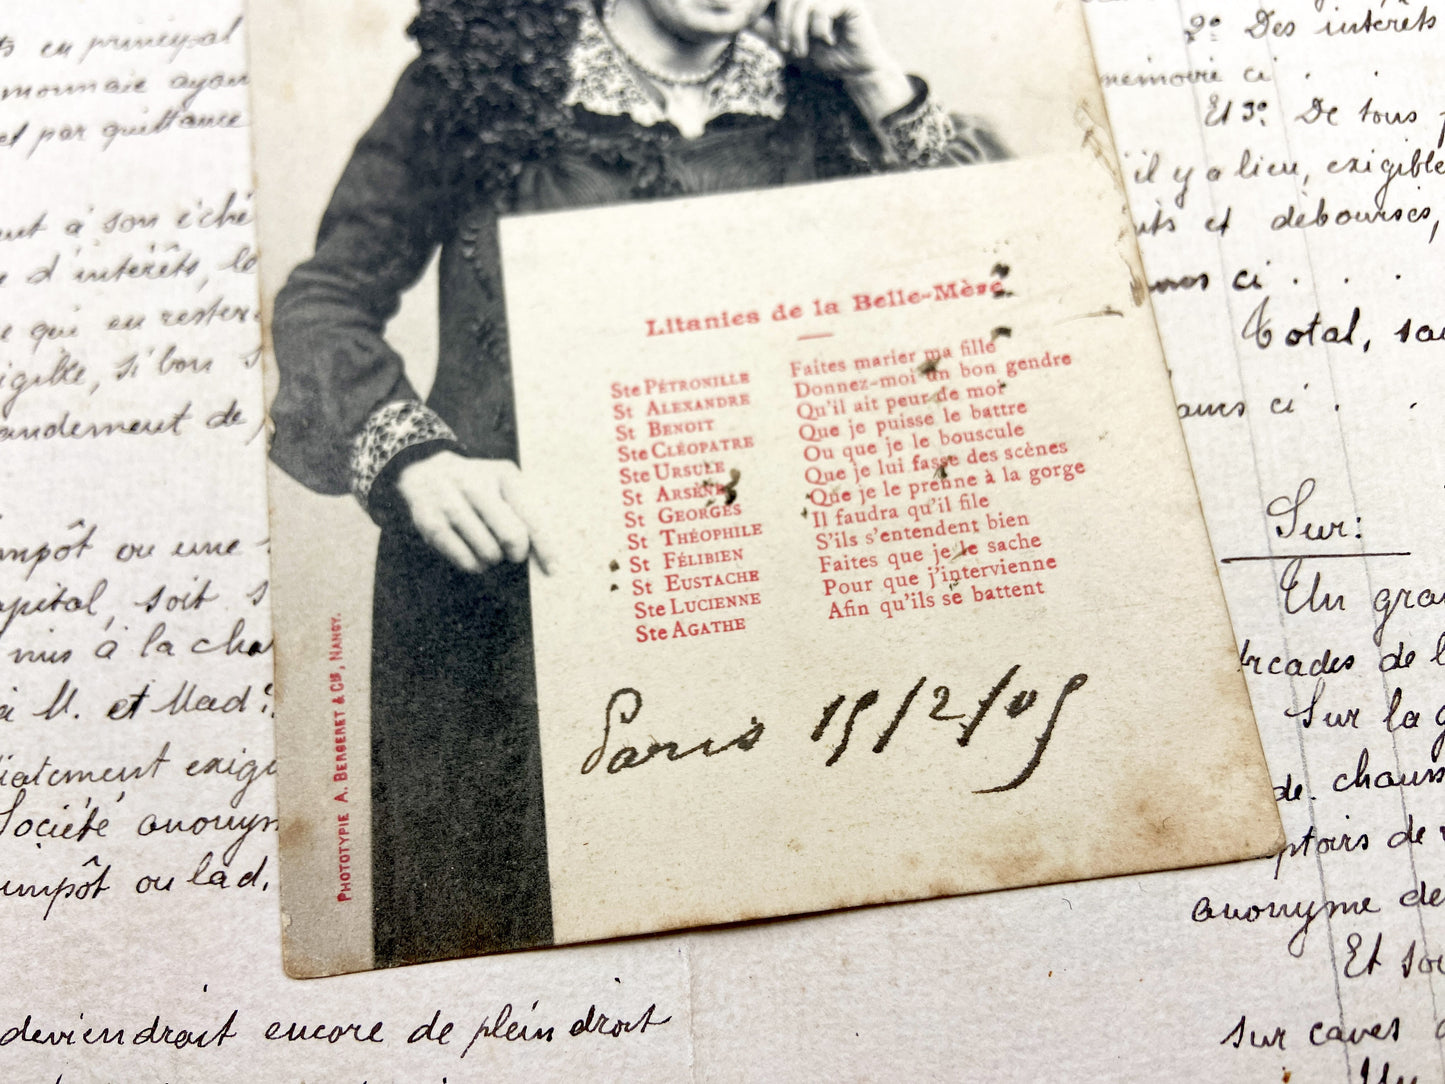 ts en principal
monnaie ayan
et par quittance
ent à son éché
d'intérêts, le
ce que en rester
igible, si bon
andement de
impôt ou une
apital, soit
mis à la cha
à M. et Mad?
iatement exigi
Société anonym
impôt ou lad.
deviendrait encore de plein droit
Litanies de la Belle-Mère
Ste PÉTRONILLE Faites marier ma fille
St ALEXANDRE Donnez-moi un bon gendre
St BENOIT Qu'il ait peur de moi
Ste CLÉOPATRE Que je puisse le battre
Ste URSULE Ou que je le bouscule
St ARSÈNE Que je lui fasse des scènes
St GEORGES Que je le prenne à la gorge
St THÉOPHILE Il faudra qu'il file
St FÉLIBIEN S'ils s'entendent bien
St EUSTACHE Faites que je le sache
Ste LUCIENNE Pour que j'intervienne
Ste AGATHE Afin qu'ils se battent
Paris 15/2/05
PHOTOTYPIE A. BERGERET & Cie, NANCY.
2° Des intérêts
mémoire ci . .
Et 3° De tous
'il y a lieu, exigible
its et débourses,
mos ci . . .
Total, sau
aurs ci . .
Sur:
Un gra
Arcades de l
Sur la g
de chauss
ptoirs de
anonyme de
Et sou
sur caves
Un